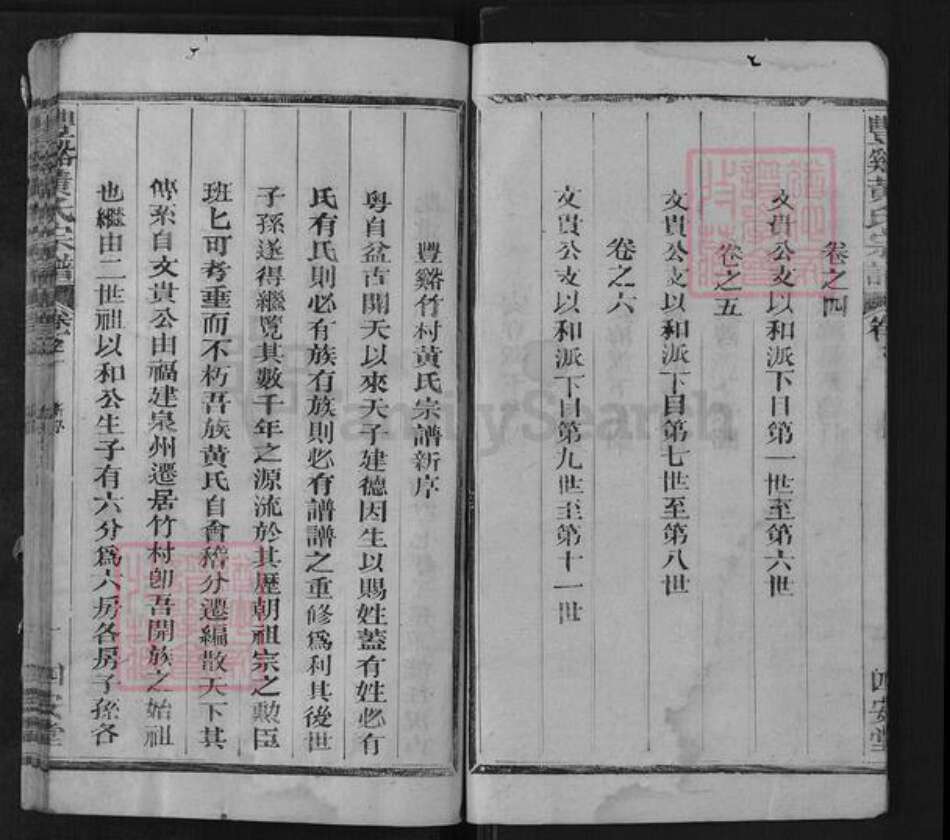 豐谿黃氏宗譜
卷之四
文貴公支以和派下自第一世至第六世
卷之五
文貴公支以和派下自第七世至第八世
卷之六
文貴公支以和派下自第九世至第十一世
四安堂
豐谿竹村黃氏宗譜新序
粵自盆古開天以來天子建德因生以賜姓蓋有姓必有
氏有氏則必有族有族則必有譜譜之重修爲利其後世
子孫遂得繼覽其數千年之源流於其歷朝祖宗之勲臣
班匕可考垂而不朽吾族黄氏自會稽分遷編散天下其
傳系自文貴公由福建泉州遷居竹村卽吾開族之始祖
也繼由二世祖以和公生子有六分爲六房各房子孫各
豐谿黃氏宗譜
卷之一
四安堂
FamilySearch